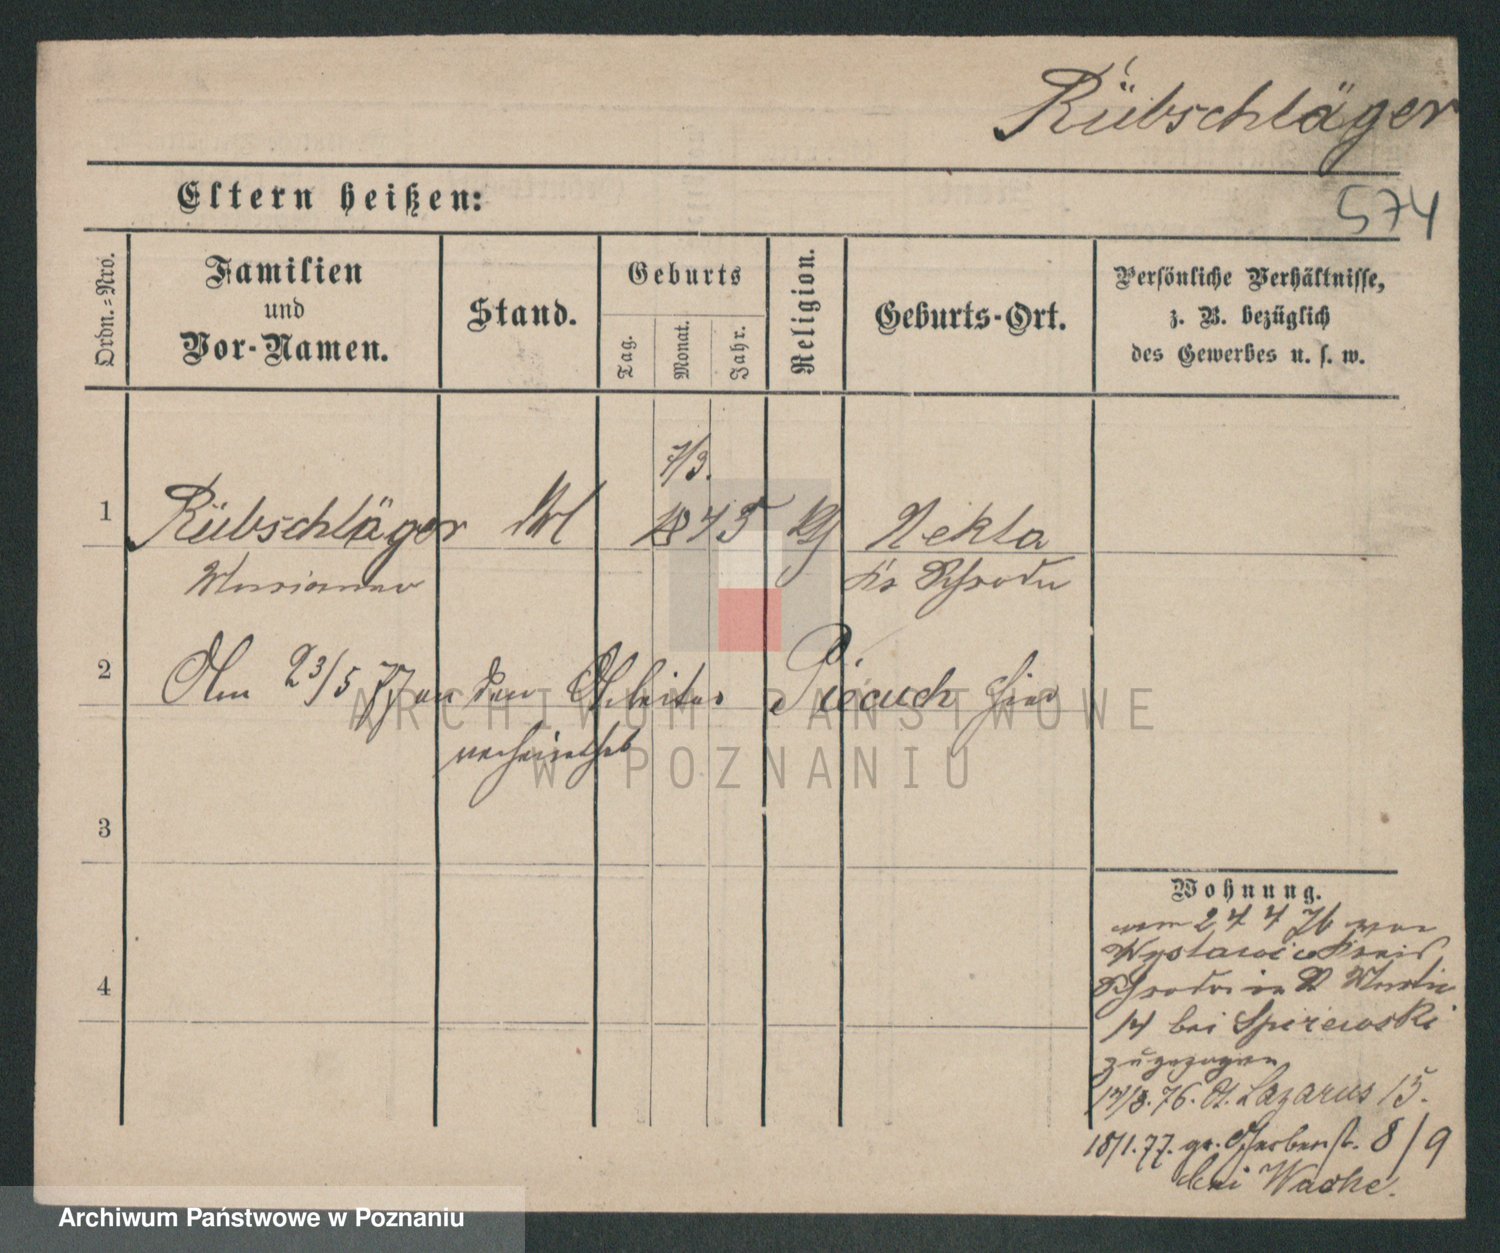 Rübschläger
574
Eltern heißen:
Ordn.-Nro.
Familien
und
Vor-Namen.
Stand.
Geburts
Tag.
Monat.
Jahr.
Religion.
Geburts-Ort.
Persönliche Verhältnisse,
z. B. bezüglich
des Gewerbes u. s. w.
7/3.
1 Rübschläger 1845 Nekla
Marianna Kr Schroda
2 Am 23/5 77 an den Arbeiter Piecuch hier
verheirathet
3
4
Wohnung.
vom 24 4 76 von
Wystawice Kreis
Schroda in St Martin
14 bei Spirewski
zugezogen
76. St. Lazarus 15.
18/1. 77. gr. Gerberstr. 8/9
bei Wache.
ARCHIWUM PAŃSTWOWE
W POZNANIU
Archiwum Państwowe w Poznaniu